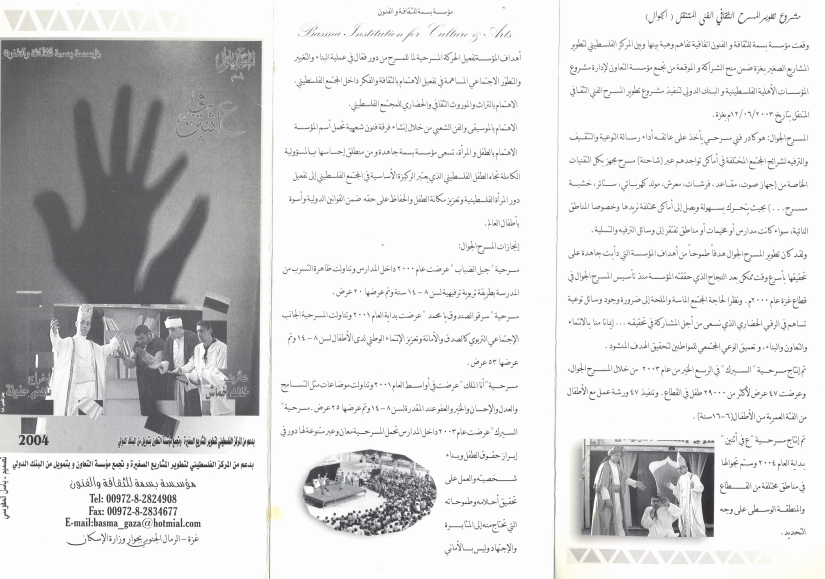 مشروع تطوير المسرح الثقافي الفني المتنقل ( الجوال )
وقعت مؤسسة بسمة للثقافة و الفنون اتفاقية تفاهم وهبة بينها وبين المركز الفلسطيني لتطوير
المشاريع الصغير بغزة ضمن منح الشراكة و الموقعة من تجمع مؤسسة التعاون لإدارة مشروع
المؤسسات الأهلية الفلسطينية و البنك الدولي لتنفيذ مشروع تطوير المسرح الفني الثقافي
المتنقل بتاريخ ١٢/٠٦/٢٠٠٣م بغزة.
المسرح الجوال: هو كادر فني مسرحي يأخذ على عاتقه أداء رسالة التوعية والتثقيف
والترفيه لشرائح المجتمع المختلفة في أماكن تواجدهم عبر (شاحنة) مسرح مجهز بكل التقنيات
الخاصة من (جهاز صوت، مقاعد ، فرشات، معرش، مولد كهربائي، ستائر، خشبة
مسرح . . . ) بحيث يتحرك بسهولة ويصل إلى أماكن مختلفة نريدها وخصوصا المناطق
النائية، سواء كانت مدارس أو مخيمات أو مناطق تفتقر إلى وسائل الترفيه والتسلية .
ولقد كان تطوير المسرح الجوال هدفاً طموحاً من أهداف المؤسسة التي دأبت جاهدة على
تحقيقها بأسرع وقت ممكن بعد النجاح الذي حققته المؤسسة منذ تأسيس المسرح الجوال في
قطاع غزة عام ٢٠٠٠م . ونظرا لحاجة المجتمع الماسة والملحة إلى ضرورة وجود وسائل توعية
تساهم في الرقي الحضاري الذي نسعى من أجل المشاركة في تحقيقه . . . إيمانا منا بالانتماء
والتعاون والبناء، و تعميق الوعي المجتمعي للمواطنين لتحقيق الهدف المنشود .
تم إنتاج مسرحية " السيرك " في الربع الأخير من عام ٢٠٠٣ من خلال المسرح الجوال،
وعرضت ٤٧ عرض لأكثر من ٢٩٠٠٠ طفل في القطاع . وتنفيذ ٤٧ ورشة عمل مع الأطفال
من الفئة العمرية من الأطفال (٦-١٦سنة) .
تم إنتاج مسرحية "ع في اثنين"
بداية العام ٢٠٠٤ وستم بتجوالها
في مناطق مختلفة من القطاع
والمنطقة الوسطى على وجه
التحديد .
مؤسسة بسمة للثقافة والفنون
Basma Institution for Culture & Arts
أهداف المؤسسة تفعيل الحركة المسرحية لما للمسرح من دور فعال في عملية البناء والتغيير
والتطور الاجتماعي المساهمة في تفعيل الاهتمام بالثقافة والفكر داخل المجتمع الفلسطيني.
الاهتمام بالتراث والموروث الثقافي والحضاري للمجتمع الفلسطيني.
الاهتمام بالموسيقى والفن الشعبي من خلال إنشاء فرقة فنون شعبية تحمل أسم المؤسسة
الاهتمام بالطفل و المرأة، تسعى مؤسسة بسمة جاهدة و من منطلق إحساسها بالمسؤولية
الكاملة تجاه الطفل الفلسطيني الذي يعتبر الركيزة الأساسية في المجتمع الفلسطيني إلى تفعيل
دور المرأة الفلسطينية وتعزيز مكانة الطفل والحفاظ على حقه ضمن القوانين الدولية وأسوة
بأطفال العالم.
إنجازات المسرح الجوال:
مسرحية "جبل الضباب" عرضت عام ٢٠٠٠ داخل المدارس وتناولت ظاهرة التسرب من
المدرسة بطريقة تربوية ترفيهية لسن ٨ - ١٤ سنة وتم عرضها ٢٠ عرض.
مسرحية "سرقو الصندوق يا محمد" عرضت بداية العام ٢٠٠١ وتناولت المسرحية الجانب
الإجتماعي التربوي كالصدق والأمانة وتعزيز الإنتماء الوطني لدى الأطفال لسن ٨ - ١٤ وتم
عرضها ٥٣ عرض.
مسرحية "أنا الملك" عرضت في أواسط العام ٢٠٠١ وتناولت موضوعات مثل التسامح
والعدل والإحسان والخير والعفو عند المقدرة لسن ٨-١٤ وتم عرضها ٢٥ عرض. مسرحية "
السيرك" عرضت عام ٢٠٠٣ داخل المدارس تحمل المسرحية معان وعبر متنوعة لها دور في
إبراز حقوق الطفل وبناء
شخصيته والعمل على
تحقيق أحلامه وطموحاته
التي تحتاج منه إلى المثابرة
والإجتهاد وليس بالأماني
مؤسسة بسمة للثقافة والفنون
ع في اثنين
تأليف
إخراج
2004
بدعم من المركز الفلسطيني لتطوير المشاريع الصغيرة و تجمع مؤسسة التعاون بتمويل من البنك الدولي
بدعم من المركز الفلسطيني لتطوير المشاريع الصغيرة و تجمع مؤسسة التعاون و بتمويل من البنك الدولي
مؤسسة بسمة للثقافة والفنون
Tel: 00972-8-2824908
Fax: 00972-8-2834677
E-mail:basma_gaza@hotmial.com
غزة - الرمال الجنوبي بجوار وزارة الإسكان